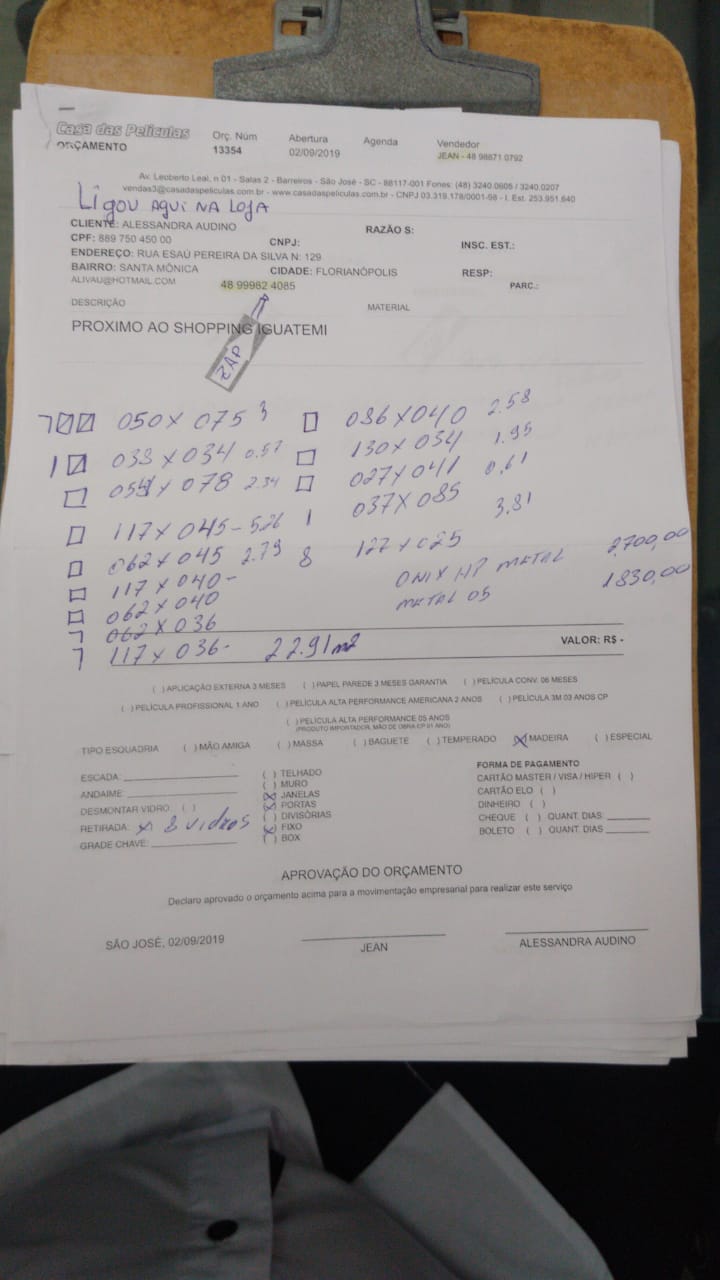 Casa das Películas
ORÇAMENTO
Orç. Núm Abertura Agenda Vendedor
13354 02/09/2019 JEAN - 48 98871 0792
Av. Leoberto Leal, n 01 - Salas 2 - Barreiros - São José - SC - 88117-001 Fones: (48) 3240.0605 / 3240.0207
vendas3@casadaspeliculas.com.br - www.casadaspeliculas.com.br - CNPJ 03.319.178/0001-98 - I. Est. 253.951.640
LIGOU AQUI NA LOJA
CLIENTE: ALESSANDRA AUDINO RAZÃO S:
CPF: 889 750 450 00 CNPJ: INSC. EST.:
ENDEREÇO: RUA ESAÚ PEREIRA DA SILVA N: 129
BAIRRO: SANTA MÔNICA CIDADE: FLORIANÓPOLIS RESP:
ALIVAU@HOTMAIL.COM 48 99982 4085 PARC.:
DESCRIÇÃO MATERIAL
PROXIMO AO SHOPPING IGUATEMI
ZAP
050 X 075 3 086 X 040 2.58
1 033 X 034 0.57 130 X 034 1.95
078 2.34 027 X 041 0,61
117 X 045 - 5.26 037 X 085 3,81
062 X 045 2.79 8 127 X 025
117 X 040 - ONIX HP METAL 2,700,00
062 X 040 METAL 05 1830,00
062 X 036
117 X 036 - 22.91 m² VALOR: R$ -
( ) APLICAÇÃO EXTERNA 3 MESES ( ) PAPEL PAREDE 3 MESES GARANTIA ( ) PELÍCULA CONV. 06 MESES
( ) PELÍCULA PROFISSIONAL 1 ANO ( ) PELÍCULA ALTA PERFORMANCE AMERICANA 2 ANOS ( ) PELÍCULA 3M 03 ANOS CP
( ) PELÍCULA ALTA PERFORMANCE 05 ANOS
(PRODUTO IMPORTADOR, MÃO DE OBRA CP 01 ANO)
TIPO ESQUADRIA ( ) MÃO AMIGA ( ) MASSA ( ) BAGUETE ( ) TEMPERADO (X) MADEIRA ( ) ESPECIAL
FORMA DE PAGAMENTO
ESCADA: ( ) TELHADO CARTÃO MASTER / VISA / HIPER ( )
ANDAIME: ( ) MURO CARTÃO ELO ( )
DESMONTAR VIDRO: ( ) (X) JANELAS DINHEIRO ( )
RETIRADA: X 8 vidros (X) PORTAS CHEQUE ( ) QUANT. DIAS:
GRADE CHAVE: ( ) DIVISÓRIAS BOLETO ( ) QUANT. DIAS
(X) FIXO
( ) BOX
APROVAÇÃO DO ORÇAMENTO
Declaro aprovado o orçamento acima para a movimentação empresarial para realizar este serviço
SÃO JOSÉ, 02/09/2019 JEAN ALESSANDRA AUDINO